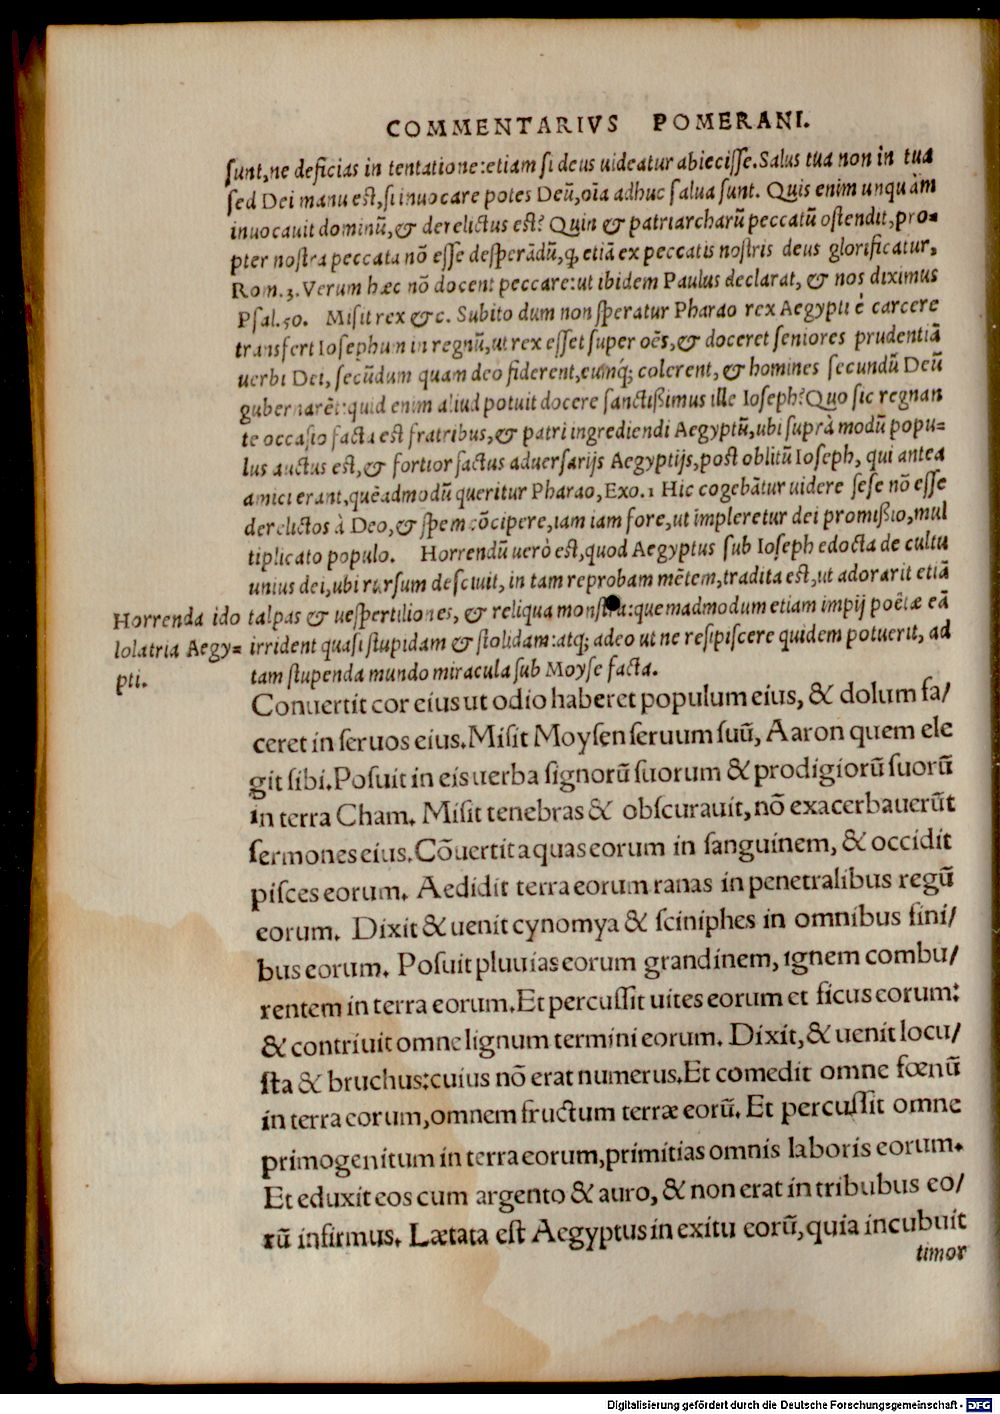 COMMENTARIVS POMERANI.
ſunt,ne deficias in tentatione:etiam ſi deus uideatur abieciſſe.Salus tua non in tua
ſed Dei manu eſt,ſi inuocare potes Deū,oīa adhuc ſalua ſunt. Quis enim unquàm
inuocauit dominū,& derelictus eſt? Quin & patriarcharū peccatū oſtendit,pro=
pter noſtra peccata nō eſſe deſperādū,q, etiā ex peccatis noſtris deus glorificatur,
Rom.3.Verum hæc nō docent peccare:ut ibidem Paulus declarat, & nos diximus
Pſal.50. Miſit rex &c. Subito dum non ſperatur Pharao rex Aegypti è carcere
transfert Ioſephum in regnū,ut rex eſſet ſuper oēs,& doceret ſeniores prudentiā
uerbi Dei, ſecūdum quam deo fiderent,eumq́; colerent, & homines ſecundū Deū
gubernarēt:quid enim aliud potuit docere ſanctißimus ille Ioſeph?Quo ſic regnan
te occaſio facta eſt fratribus,& patri ingrediendi Aegyptū,ubi ſuprà modū popu=
lus auctus eſt,& fortior factus aduerſarijs Aegyptijs,poſt oblitū Ioſeph, qui antea
amici erant,quēadmodū queritur Pharao,Exo.1 Hic cogebātur uidere ſeſe nō eſſe
derelictos à Deo,& ſpem cōcipere,iam iam fore,ut impleretur dei promißio,mul
tiplicato populo. Horrendū uerò eſt,quod Aegyptus ſub Ioſeph edocta de cultu
unius dei,ubi rurſum deſciuit, in tam reprobam mētem,tradita eſt,ut adorarit etiā
Horrenda ido talpas & ueſpertiliones, & reliqua monſtra:quemadmodum etiam impij poëtæ eā
lolatria Aegy= irrident quaſi ſtupidam & ſtolidam:atq; adeo ut ne reſipiſcere quidem potuerit, ad
pti. tam ſtupenda mundo miracula ſub Moyſe facta.
Conuertit cor eius ut odio haberet populum eius, & dolum fa/
ceret in ſeruos eius.Miſit Moyſen ſeruum ſuū, Aaron quem ele
git ſibi.Poſuit in eis uerba ſignorū ſuorum & prodigiorū ſuorū
in terra Cham. Miſit tenebras & obſcurauit,nō exacerbauerūt
ſermones eius.Cōuertit aquas eorum in ſanguinem, & occidit
piſces eorum. Aedidit terra eorum ranas in penetralibus regū
eorum. Dixit & uenit cynomya & ſciniphes in omnibus fini/
bus eorum. Poſuit pluuias eorum grandinem, ignem combu/
rentem in terra eorum.Et percuſſit uites eorum et ficus eorum:
& contriuit omne lignum termini eorum. Dixit,& uenit locu/
ſta & bruchus:cuius nō erat numerus.Et comedit omne fœnū
in terra eorum,omnem fructum terræ eorū. Et percuſſit omne
primogenitum in terra eorum,primitias omnis laboris eorum.
Et eduxit eos cum argento & auro, & non erat in tribubus eo/
rū infirmus. Lætata eſt Aegyptus in exitu eorū,quia incubuit
timor
Digitalisierung gefördert durch die Deutsche Forschungsgemeinschaft - DFG